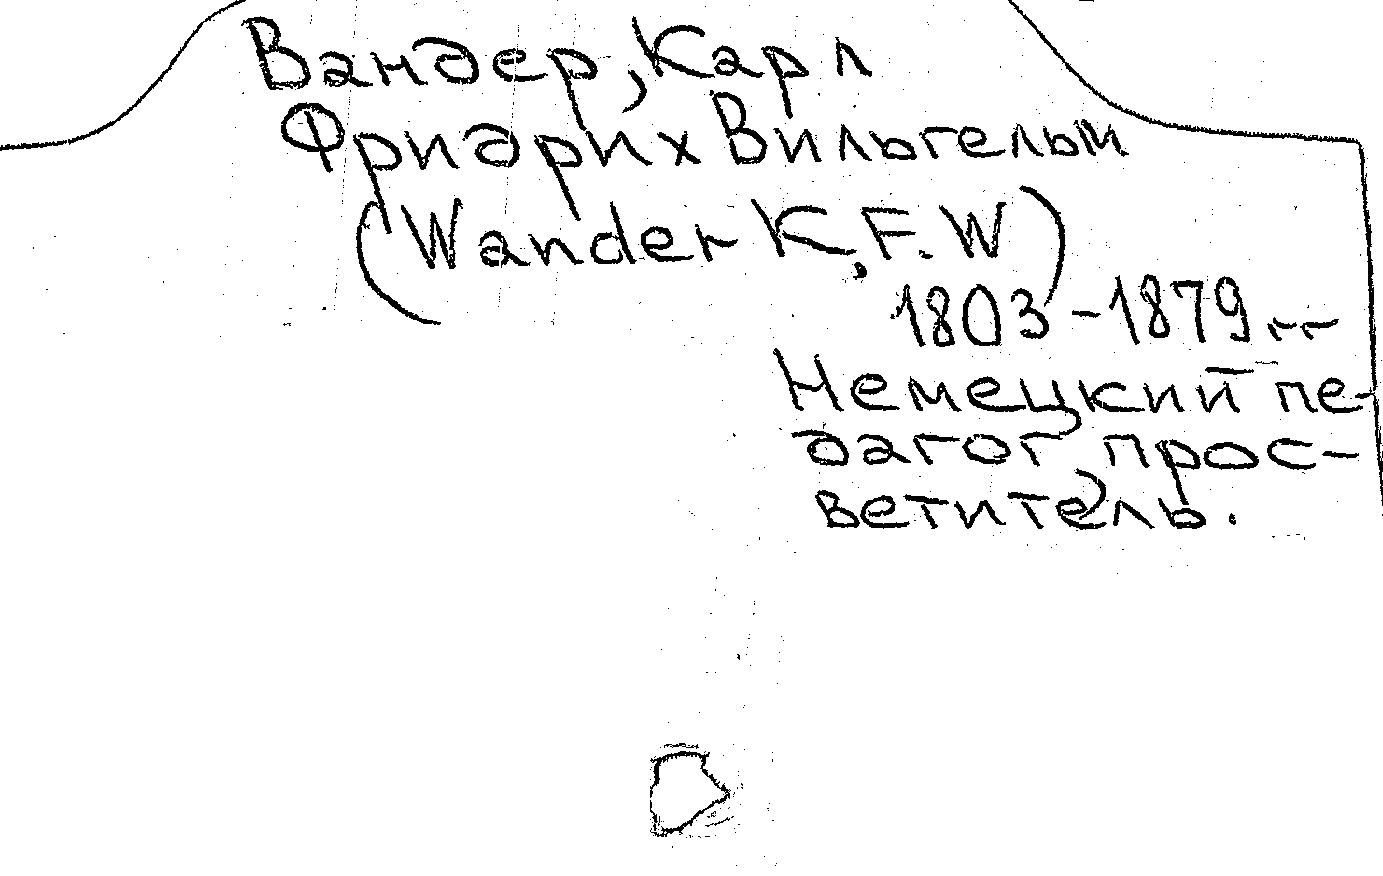 Вандер, Карл
Фридрих Вильгельм
(Wander K, F. W)
1803-1879 гг
Немецкий пе-
дагог, прос-
ветитель.